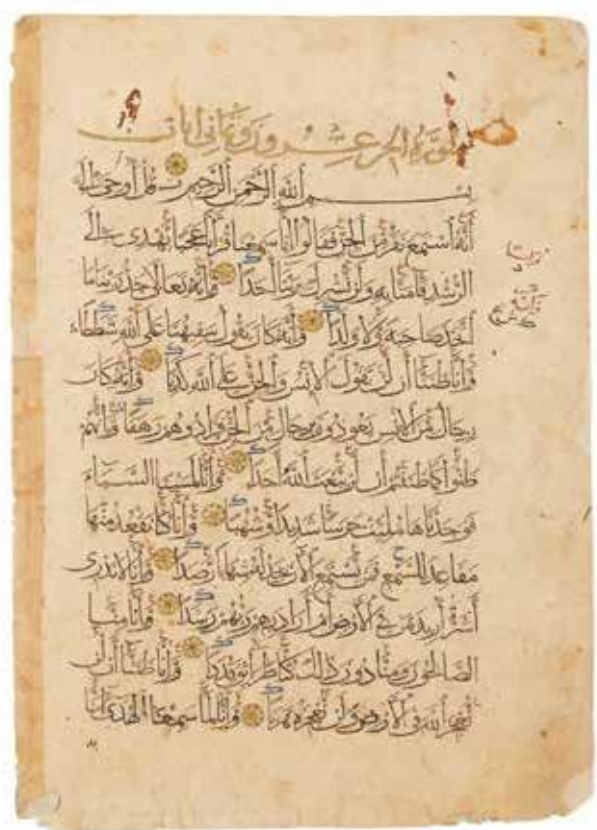 سورة الجن عشرون وثماني ايات
بسم الله الرحمن الرحيم قل أوحي إلي
أنه استمع نفر من الجن فقالوا إنا سمعنا قرآنا عجبا يهدي إلى
الرشد فآمنا به ولن نشرك بربنا أحدا وأنه تعالى جد ربنا ما
اتخذ صاحبة ولا ولدا وأنه كان يقول سفيهنا على الله شططا
وأنا ظننا أن لن تقول الإنس والجن على الله كذبا وأنه كان
رجال من الإنس يعوذون برجال من الجن فزادوهم رهقا وأنهم
ظنوا كما ظننتم أن لن يبعث الله أحدا وأنا لمسنا السماء
فوجدناها ملئت حرسا شديدا وشهبا وأنا كنا نقعد منها
مقاعد للسمع فمن يستمع الآن يجد له شهابا رصدا وأنا لا ندري
أشر أريد بمن في الأرض أم أراد بهم ربهم رشدا وأنا منا
الصالحون ومنا دون ذلك كنا طرائق قددا وأنا ظننا أن لن
نعجز الله في الأرض ولن نعجزه هربا وأنا لما سمعنا الهدى آمنا